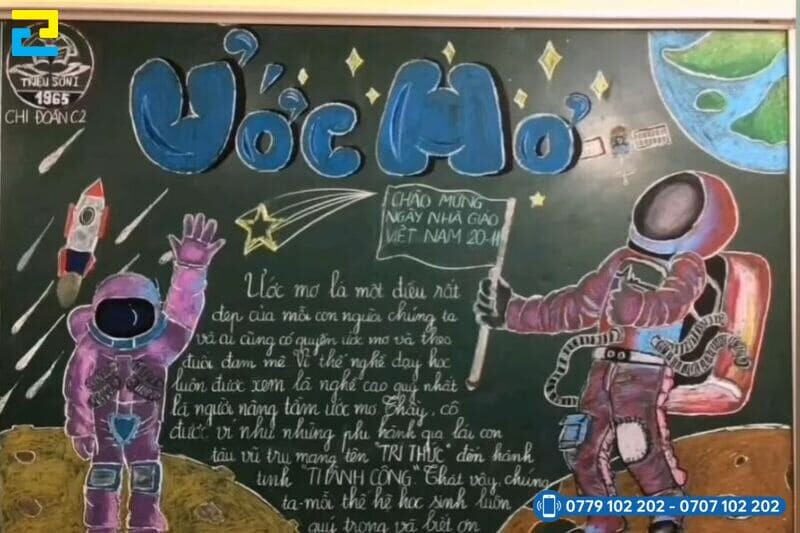 TRIỆU SƠN I
1965
CHI ĐOÀN C2
ƯỚC MƠ
CHÀO MỪNG
NGÀY NHÀ GIÁO
VIỆT NAM 20-11
Ước mơ là một điều rất
đẹp của mỗi con người chúng ta
và ai cũng có quyền ước mơ và theo
đuổi đam mê Vì thế nghề dạy học
luôn được xem là nghề cao quý nhất
là người nâng tầm ước mơ. Thầy, cô
được ví như những phi hành gia lái con
tàu vũ trụ mang tên "TRI THỨC" đến hành
tinh "THÀNH CÔNG". Thật vậy, chúng
ta-mỗi thế hệ học sinh luôn
quý trọng và biết ơn
0779 102 202 - 0707 102 202